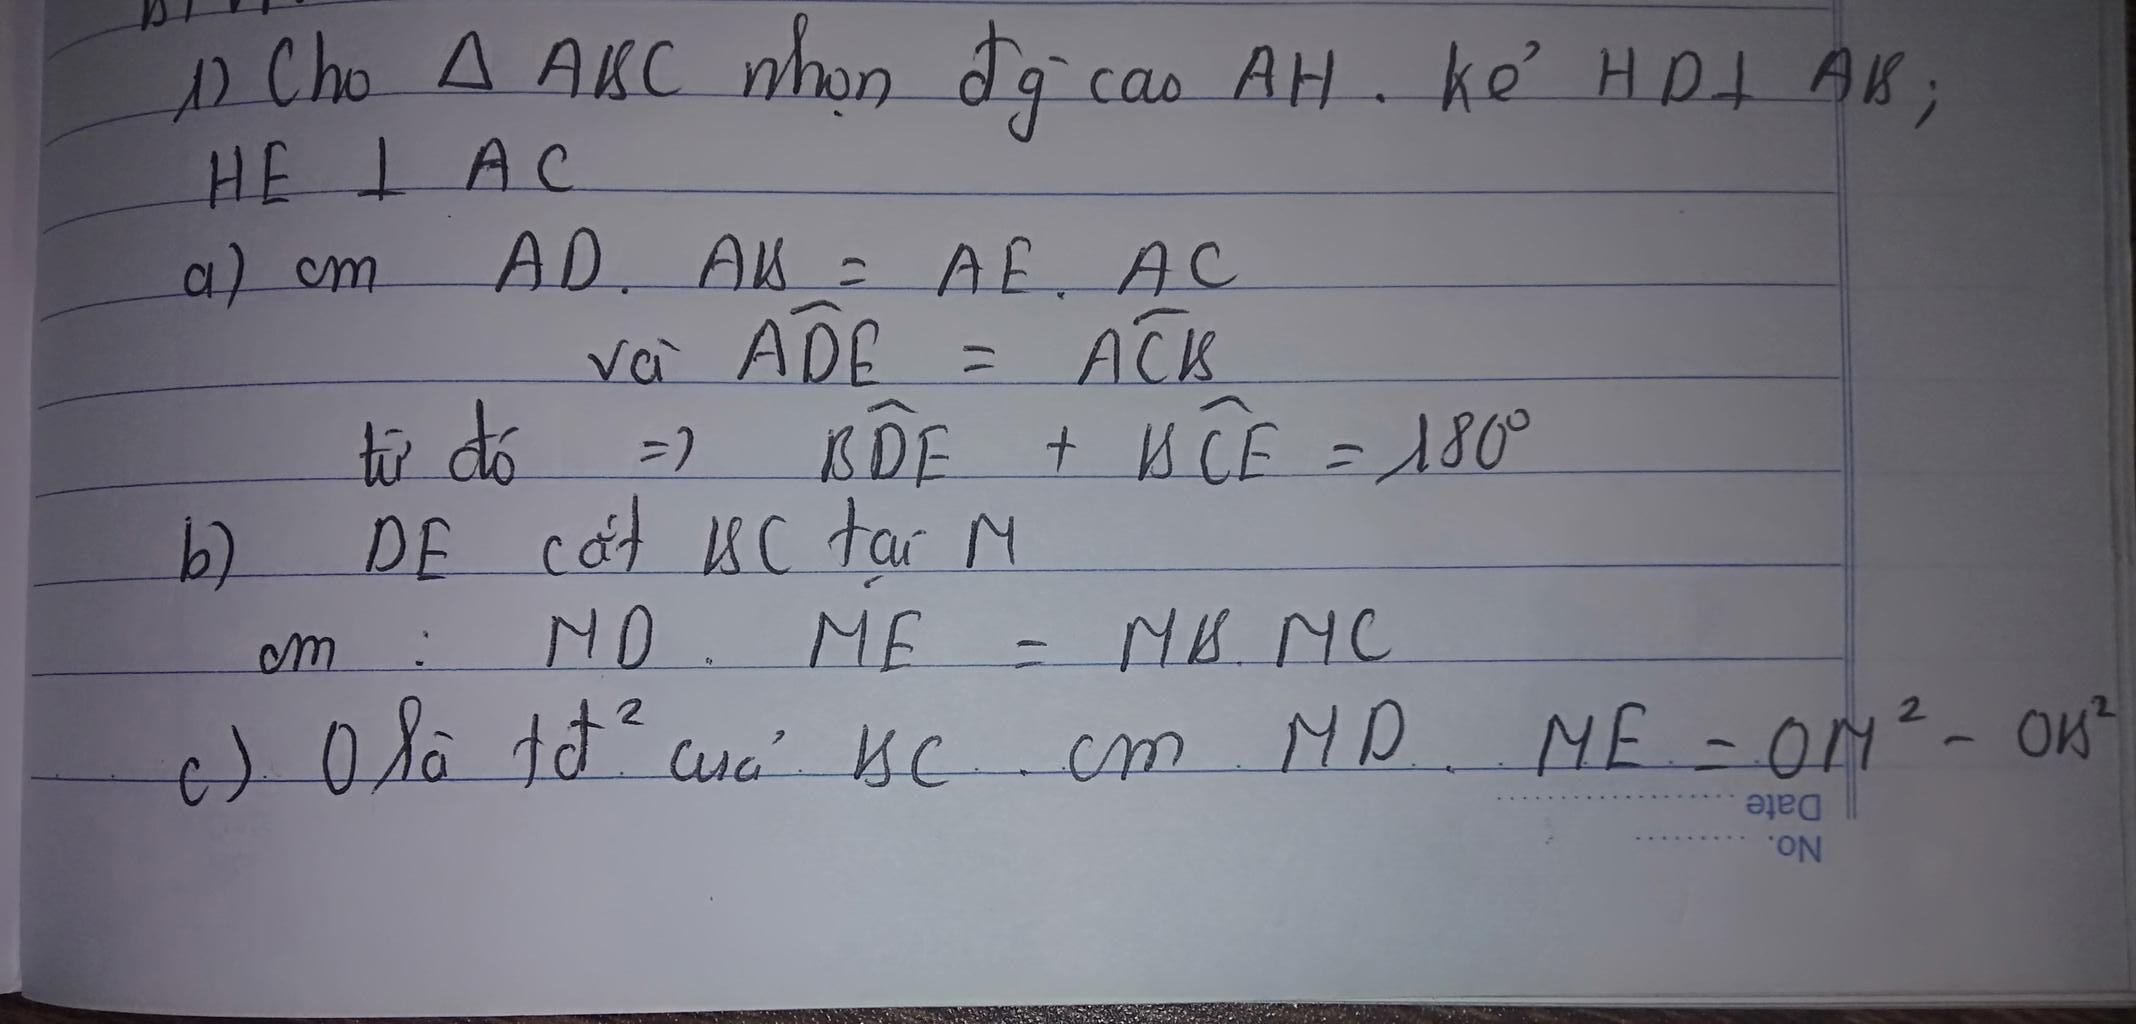 1) Cho Δ ABC nhọn đg` cao AH. kẻ HD⊥ AB;
HE ⊥ AC
a) cm AD. AB = AE. AC
và ADE^ = ACB^
từ đó => BDE^ + BCE^ = 180°
b) DE cắt BC tại M
cm : MD. ME = MB. MC
c) O là tđ² của BC. cm MD. ME = OM² - OB²
Date
No.